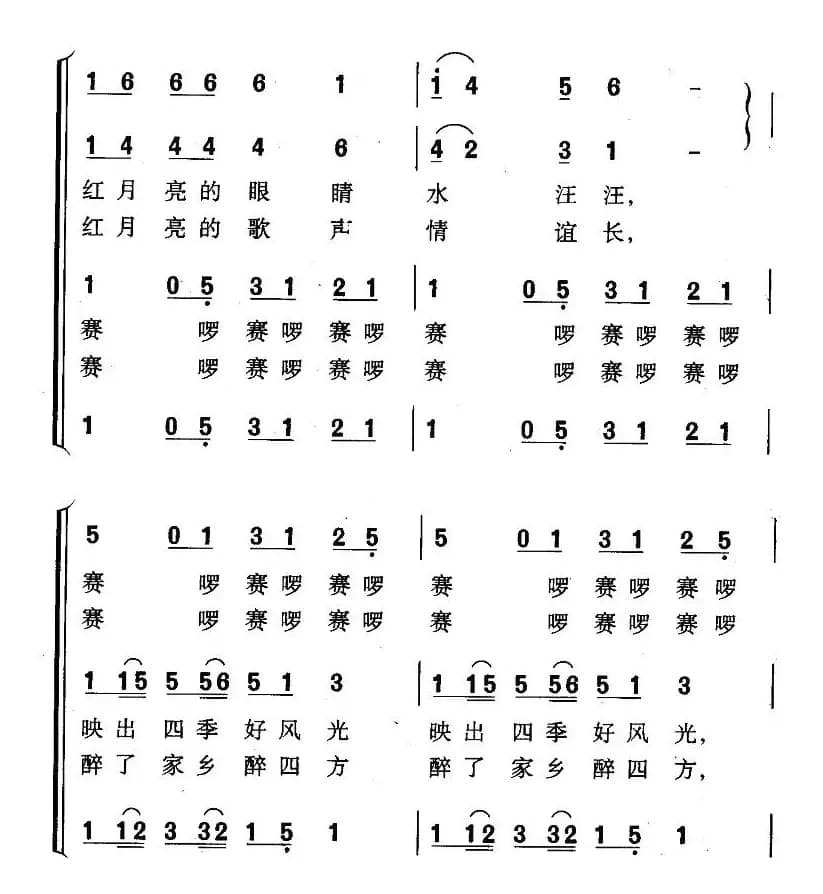 1 6 6 6 6 1 | 1 4 5 6 -
1 4 4 4 4 6 | 4 2 3 1 -
红月亮的眼睛水汪汪,
红月亮的歌声情谊长,
1 0 5 3 1 2 1 | 1 0 5 3 1 2 1 |
赛 啰赛啰赛啰 赛 啰赛啰赛啰
赛 啰赛啰赛啰 赛 啰赛啰赛啰
1 0 5 3 1 2 1 | 1 0 5 3 1 2 1 |
5 0 1 3 1 2 5 | 5 0 1 3 1 2 5 |
赛 啰赛啰赛啰 赛 啰赛啰赛啰
赛 啰赛啰赛啰 赛 啰赛啰赛啰
1 15 5 56 5 1 3 | 1 15 5 56 5 1 3 |
映出四季好风光 映出四季好风光,
醉了家乡醉四方 醉了家乡醉四方,
1 12 3 32 1 5 1 | 1 12 3 32 1 5 1 |